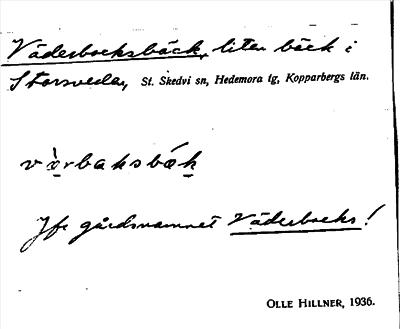 Väderbocksbäck, liten bäck i
Storsveden, St. Skedvi sn, Hedemora tg, Kopparbergs län.
vὰ̤rbaksbǽk̠
Jfr gårdsnamnet Väderbocks!
OLLE HILLNER, 1936.